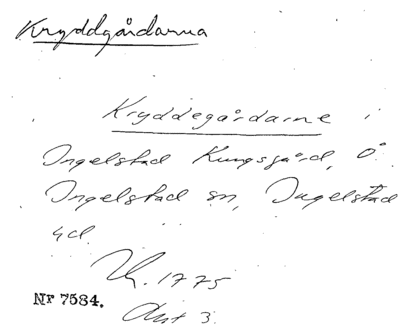 Kryddgårdarna
Kryddegårdarne i
Ingelstad Kungsgård, Ö
Ingelstad sn, Ingelstad
hd.
1775
Nr 7584.
Akt 3.